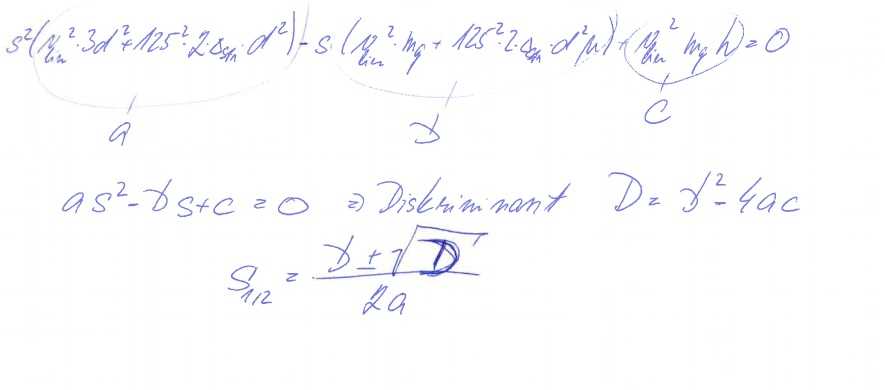 s²(η_lin²·3d²+125²·2·s_stn·d²)-s·(η_lin²·mg+125²·2·s_stn·d²μ)+(η_lin² mg h)=0
a b c
as²-bs+c=0 ⇒ Diskriminant D=b²-4ac
S_1/2 = (b±√D)/2a